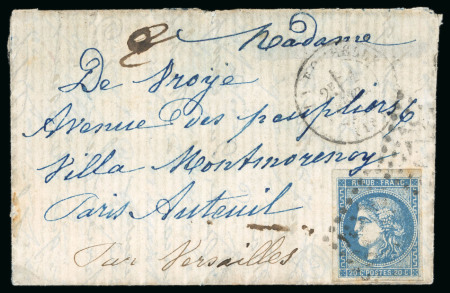 Madame
De Vroÿe
Avenue des peupliers 6
Villa Montmorency
Paris Auteuil
Par Versailles
REPUB. FRANC.
20 C POSTES 20 C